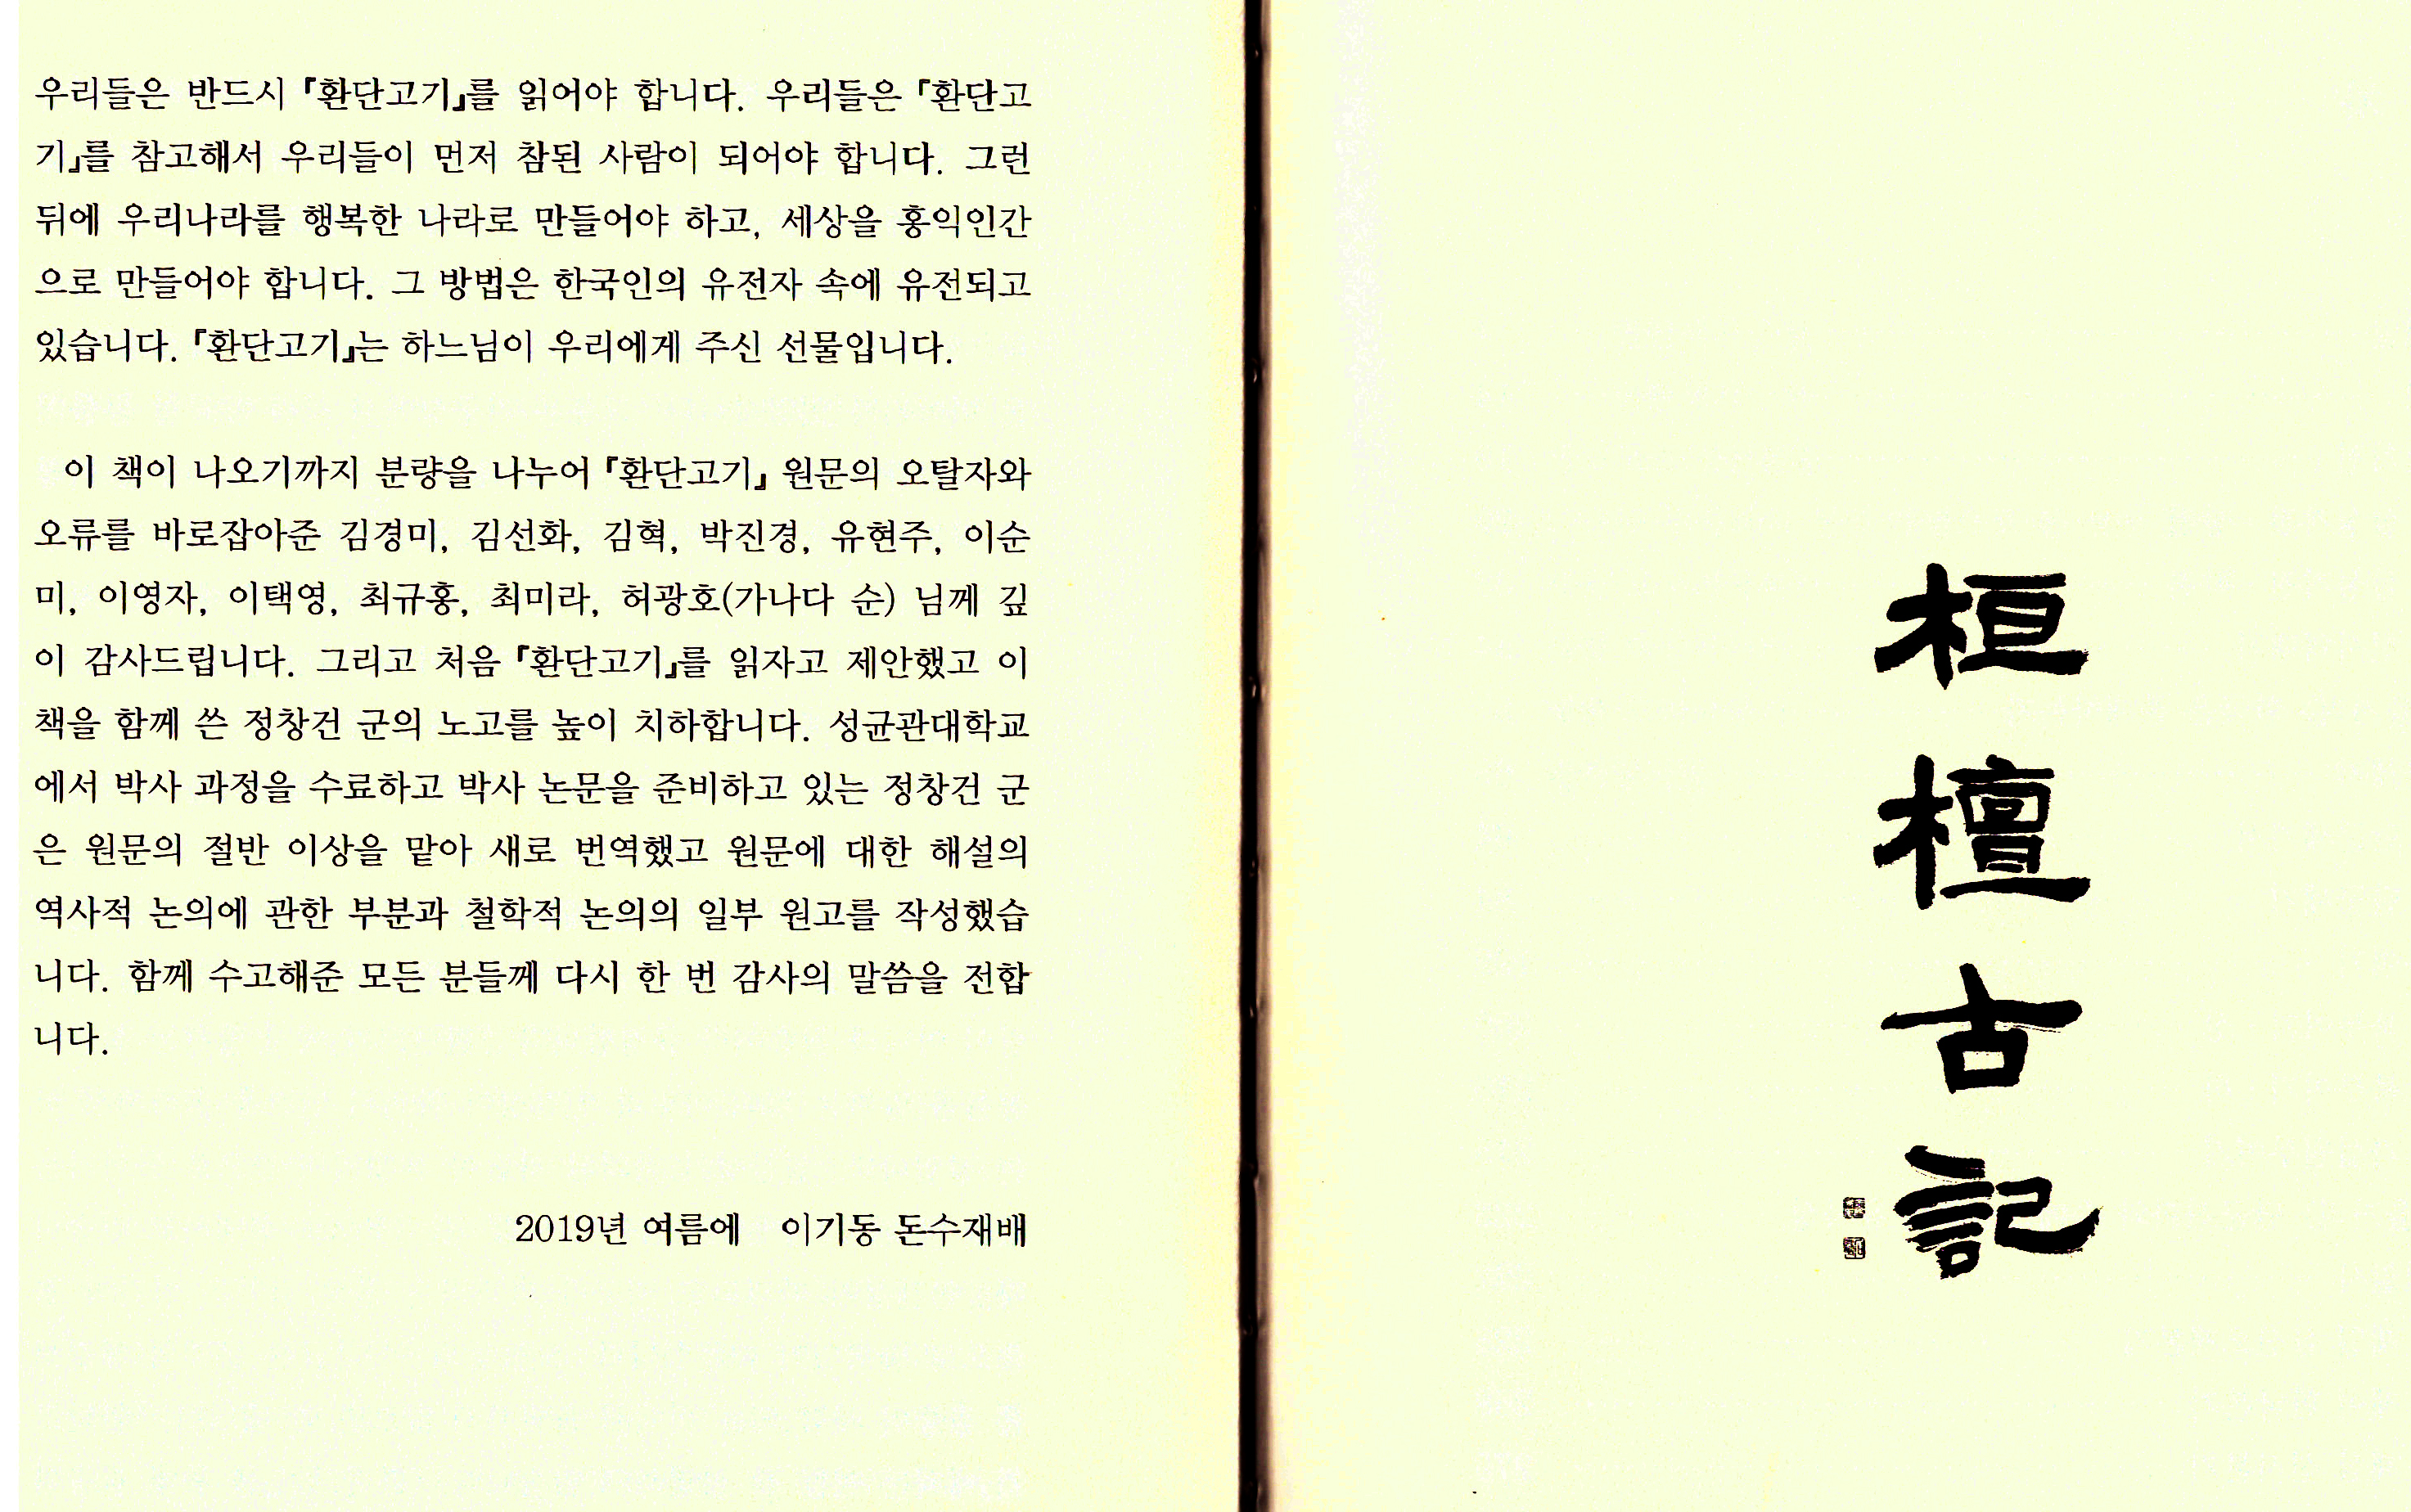 우리들은 반드시 『환단고기』를 읽어야 합니다. 우리들은 『환단고
기』를 참고해서 우리들이 먼저 참된 사람이 되어야 합니다. 그런
뒤에 우리나라를 행복한 나라로 만들어야 하고, 세상을 홍익인간
으로 만들어야 합니다. 그 방법은 한국인의 유전자 속에 유전되고
있습니다. 『환단고기』는 하느님이 우리에게 주신 선물입니다.
이 책이 나오기까지 분량을 나누어 『환단고기』 원문의 오탈자와
오류를 바로잡아준 김경미, 김선화, 김혁, 박진경, 유현주, 이순
미, 이영자, 이택영, 최규홍, 최미라, 허광호(가나다 순) 님께 깊
이 감사드립니다. 그리고 처음 『환단고기』를 읽자고 제안했고 이
책을 함께 쓴 정창건 군의 노고를 높이 치하합니다. 성균관대학교
에서 박사 과정을 수료하고 박사 논문을 준비하고 있는 정창건 군
은 원문의 절반 이상을 맡아 새로 번역했고 원문에 대한 해설의
역사적 논의에 관한 부분과 철학적 논의의 일부 원고를 작성했습
니다. 함께 수고해준 모든 분들께 다시 한 번 감사의 말씀을 전합
니다.
2019년 여름에 이기동 돈수재배
桓檀古記